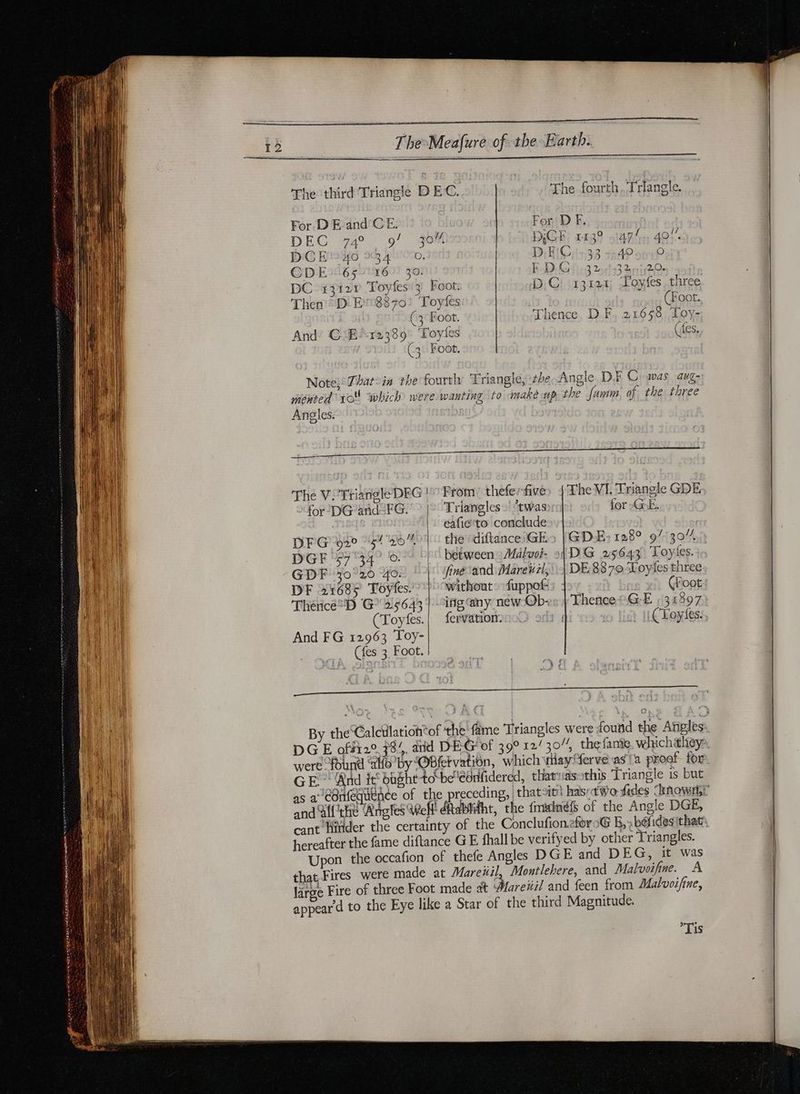 12 The Meaſure of the Earth.
The third Triangle D E C.
For D E and C E.
DEC 74° 9′ 30″
DCE 40 34 0.
CDE 65 16 30.
DC 13121 Toyſes 3 Foot.
Then D E 8870 Toyſes
(3 Foot.
And C E 12389 Toyſes
(3 Foot.
The fourth Triangle.
For D F.
DCF 113° 47′ 40″.
DFC 33 40 0.
FDC 32 32 20.
DC 13121 Toyſes three
(Foot.
Thence D F, 21658 Toy-
(ſes.
Note, That in the fourth Triangle, the Angle D F C was aug-
mented 10″ which were wanting to make up the ſumm of the three
Angles.
The V. Triangle DFG
for DG and FG.
DFG 92° 5′ 20″
DGF 57 34 0.
GDF 30 20 40.
DF 21685 Toyſes.
Thence D G 25643
(Toyſes.
And FG 12963 Toy-
(ſes 3 Foot.
From theſe five
Triangles 'twas
eaſie to conclude
the diſtance GE
between Malvoi-
ſine and Mareüil,
without ſuppoſ-
ing any new Ob-
ſervation.
The VI. Triangle GDE
for G E.
GDE 128° 9′ 30″.
DG 25643 Toyſes.
DE 8870 Toyſes three
(Foot
Thence G E 31897
(Toyſes.
By the Calculation of the ſame Triangles were found the Angles
DGE of 12° 38′, and DEG of 39° 12′ 30″, the ſame which they
were found alſo by Obſervation, which may ſerve as a proof for
GE. And it ought to be conſidered, that as this Triangle is but
as a conſequence of the preceding, that it has two ſides known,
and all the Angles well eſtabliſht, the ſmalneſs of the Angle DGE,
cant hinder the certainty of the Concluſion for G E, beſides that
hereafter the ſame diſtance G E ſhall be verifyed by other Triangles.
Upon the occaſion of theſe Angles DGE and DEG, it was
that Fires were made at Mareüil, Montlehere, and Malvoiſine. A
large Fire of three Foot made at Mareüil and ſeen from Malvoiſine,
appear'd to the Eye like a Star of the third Magnitude.
'Tis